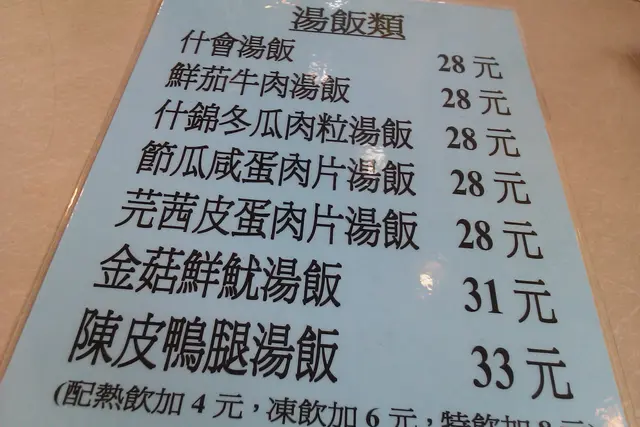 湯飯類
什會湯飯 28 元
鮮茄牛肉湯飯 28 元
什錦冬瓜肉粒湯飯 28 元
節瓜咸蛋肉片湯飯 28 元
芫茜皮蛋肉片湯飯 28 元
金菇鮮魷湯飯 31 元
陳皮鴨腿湯飯 33 元
(配熱飲加 4 元，凍飲加 6 元，特飲加 8 元)